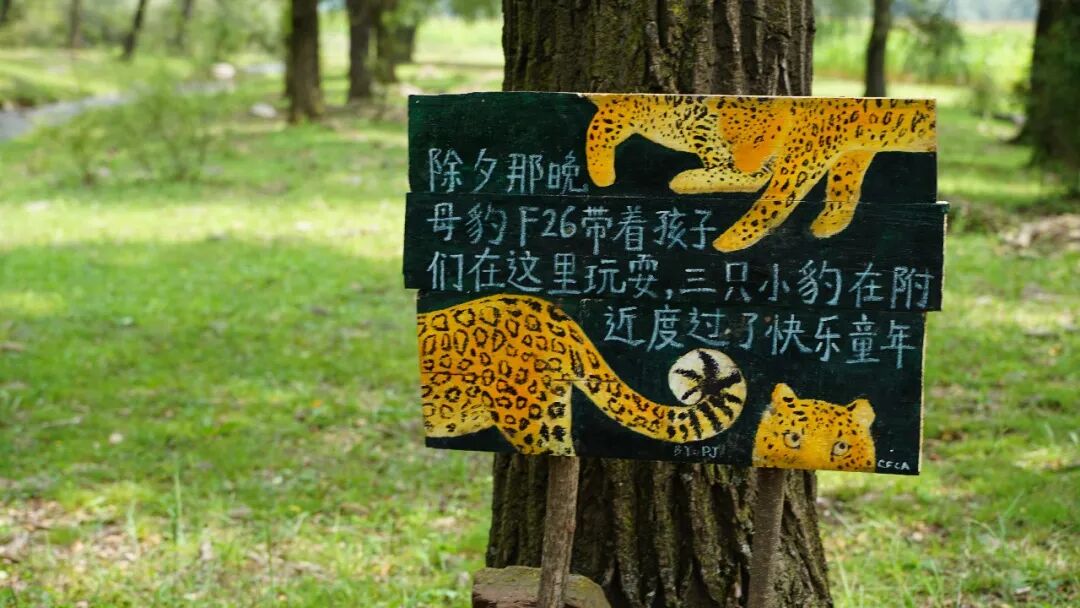 除夕那晚
母豹F26带着孩子
们在这里玩耍,三只小豹在附
近度过了快乐童年
CFCA